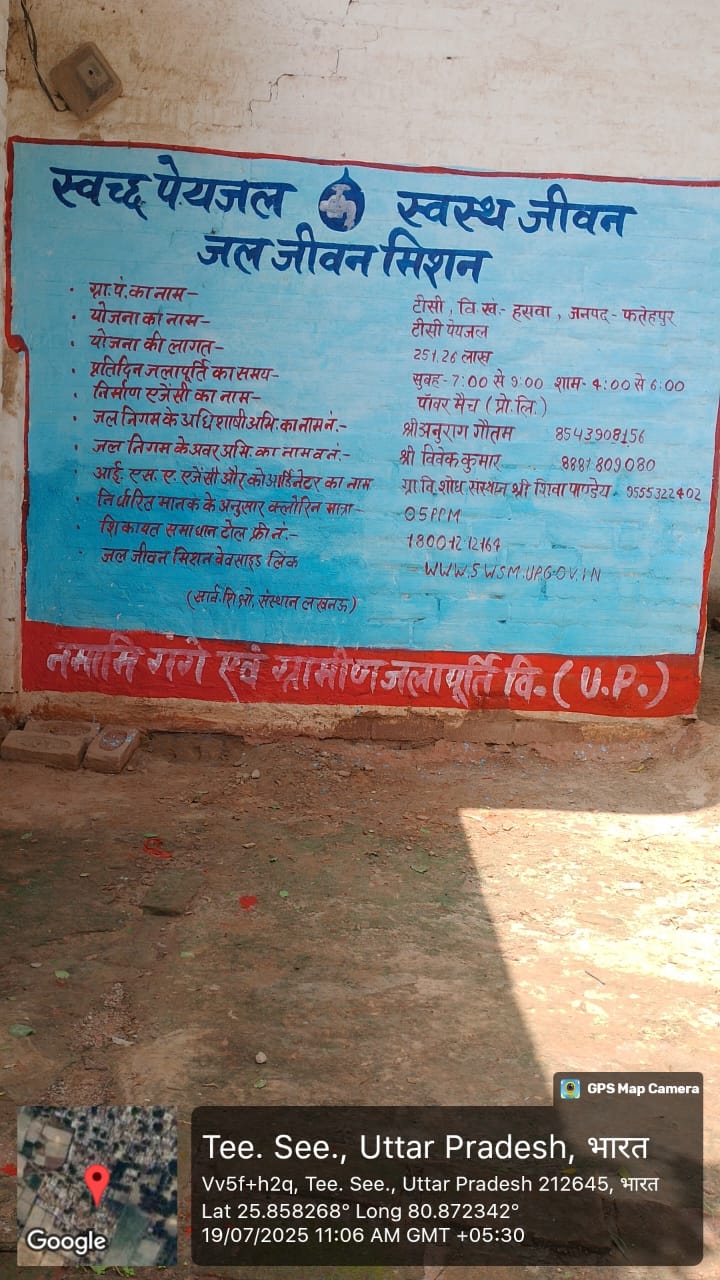 स्वच्छ पेयजल स्वस्थ जीवन
जल जीवन मिशन
• ग्रा.पं.का नाम- टीसी , वि.खं.- हसवा , जनपद - फतेहपुर
• योजना का नाम- टीसी पेयजल
• योजना की लागत- 251.26 लाख
• प्रतिदिन जलापूर्ति का समय- सुबह - 7:00 से 9:00 शाम - 4:00 से 6:00
• निर्माण एजेंसी का नाम- पॉवर मैच ( प्रो.लि.)
• जल निगम के अधिशाषी अभि. का नाम नं.- श्री अनुराग गौतम 8543908156
• जल निगम के अवर अभि. का नाम व नं.- श्री विवेक कुमार 8881809080
• आई. एस. ए. एजेंसी और कोआर्डिनेटर का नाम ग्रा.वि.शोध संस्थान श्री शिवा पाण्डेय. 9555322402
• निर्धारित मानक के अनुसार क्लोरिन मात्रा- 05PPM
• शिकायत समाधान टोल फ्री नं.- 18001212164
• जल जीवन मिशन वेवसाइड लिंक WWW.SWSM.UP.GOV.IN
(सार्व.शि.ओ. संस्थान लखनऊ)
नमामि गंगे एवं ग्रामीण जलापूर्ति वि. ( U.P.)
GPS Map Camera
Tee. See., Uttar Pradesh, भारत
Vv5f+h2q, Tee. See., Uttar Pradesh 212645, भारत
Lat 25.858268° Long 80.872342°
19/07/2025 11:06 AM GMT +05:30
Google